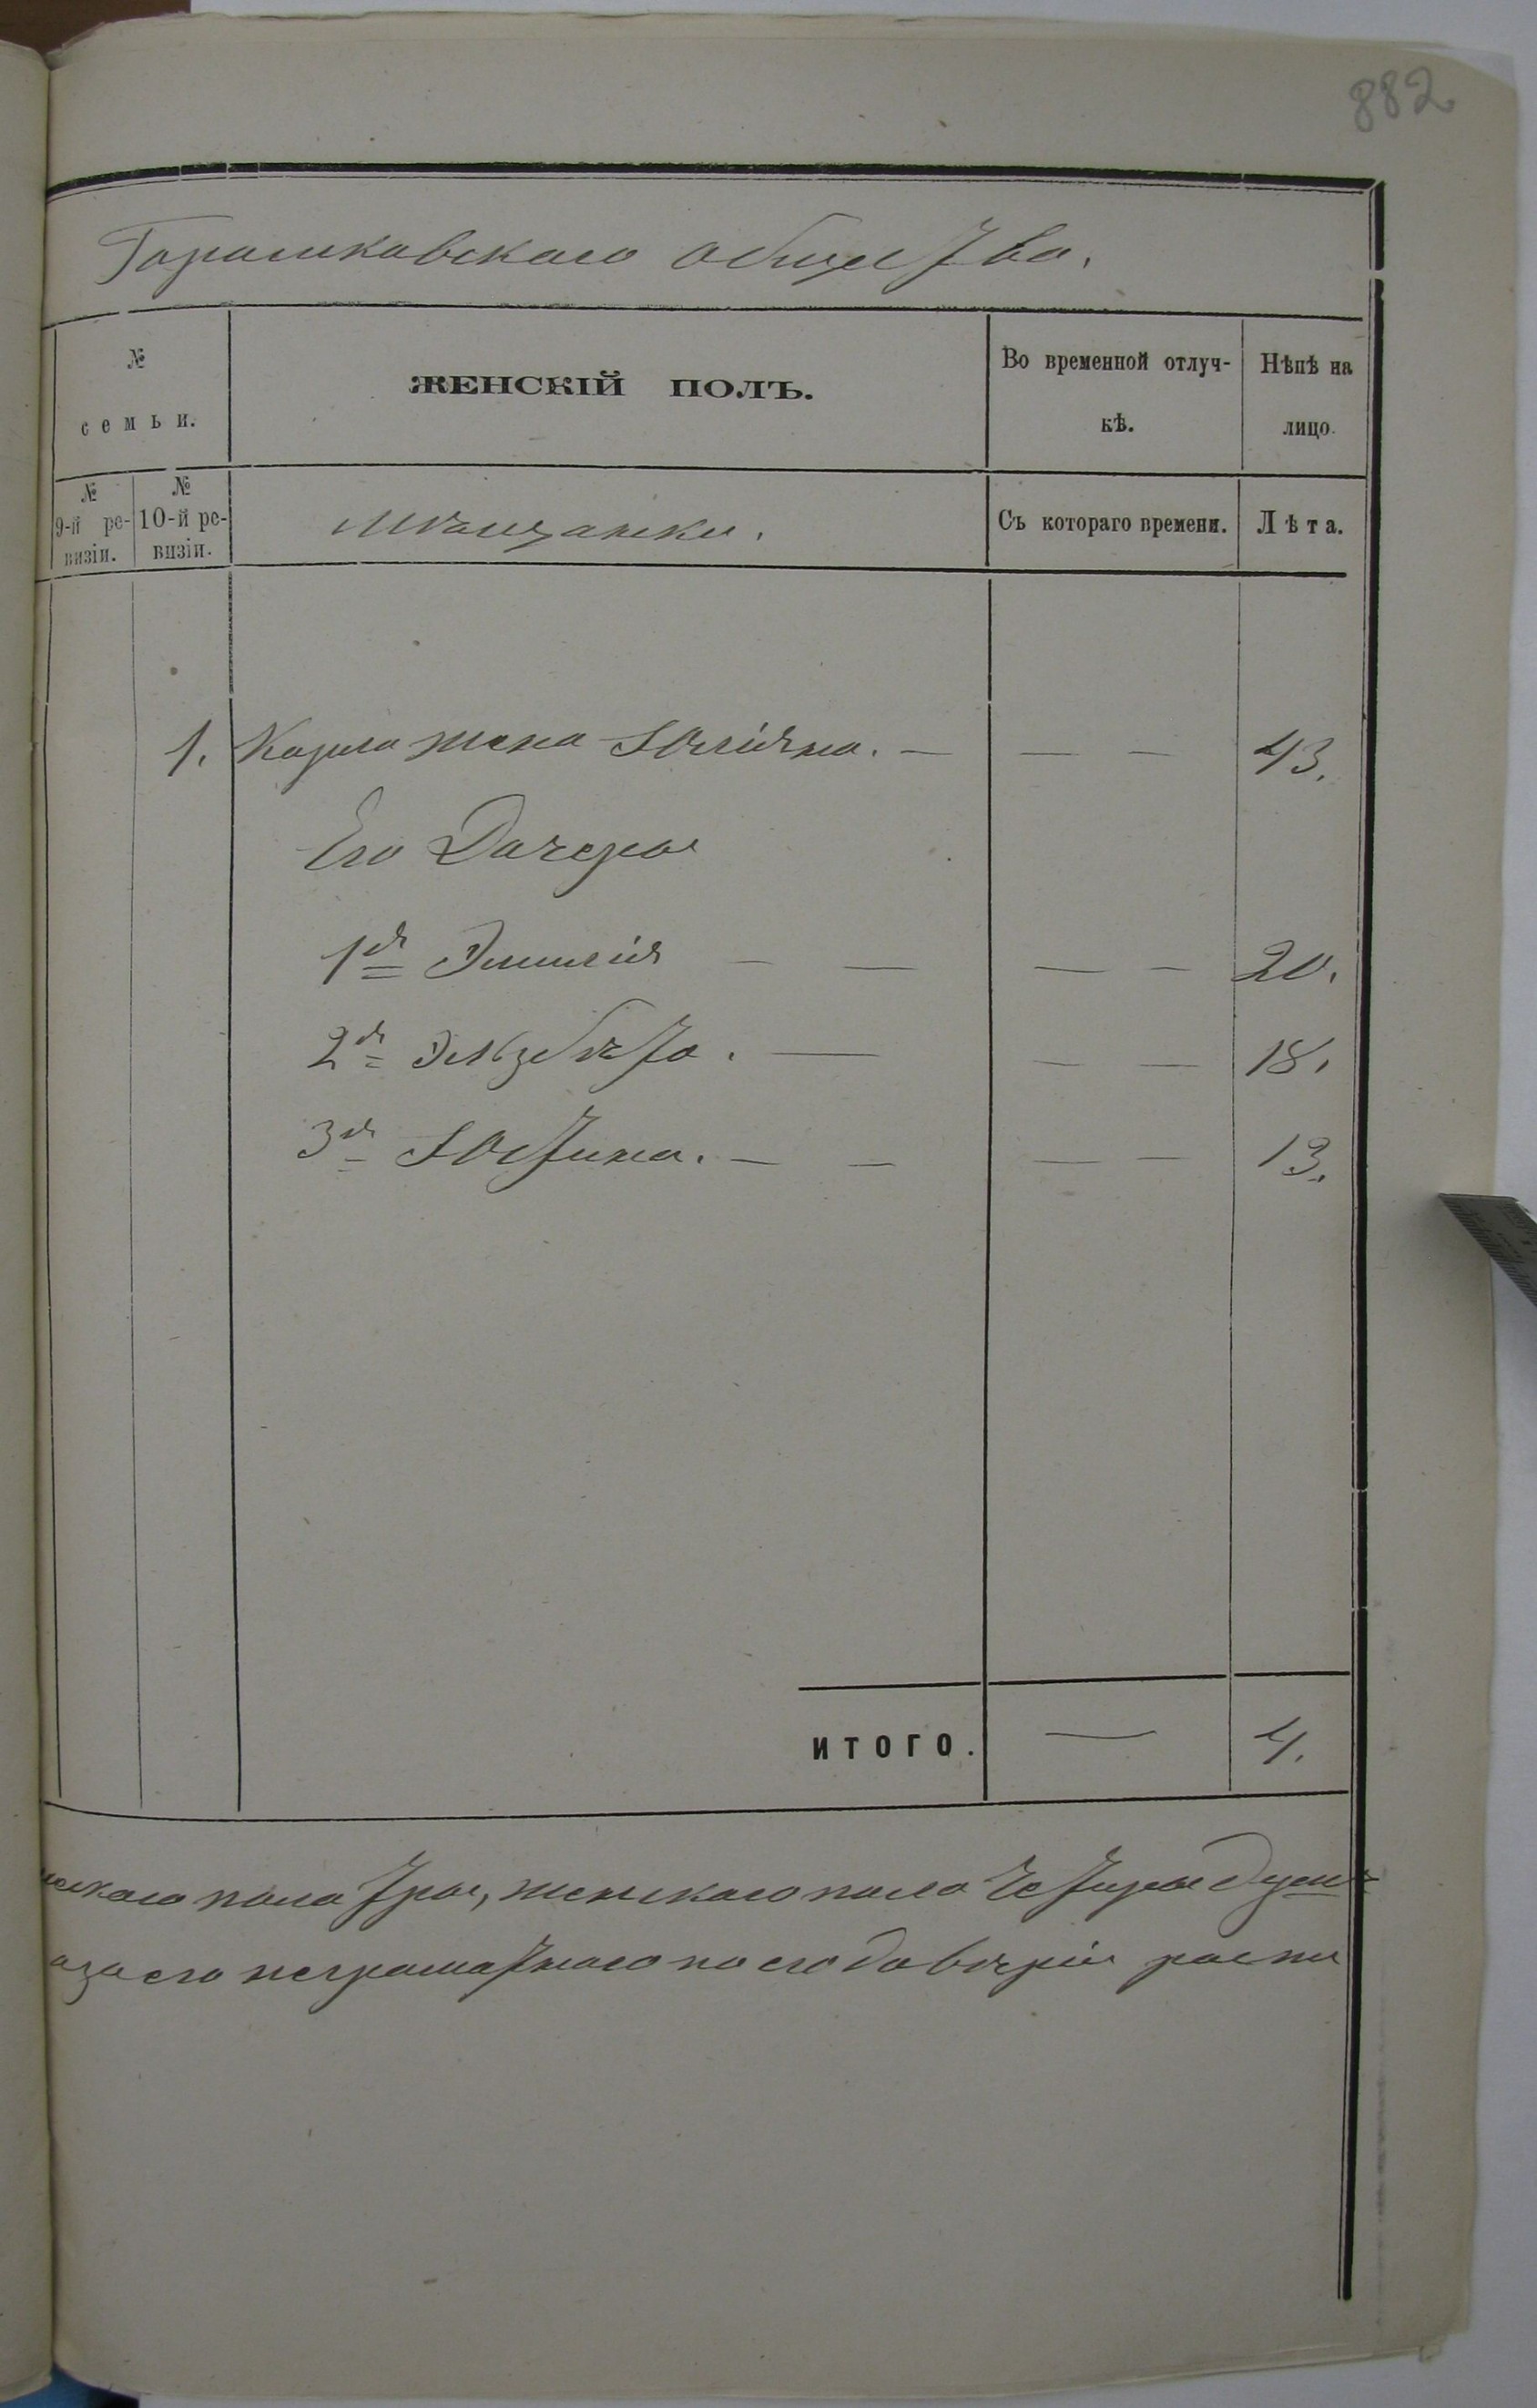 882
Горошковскаго общества.
№
семьи.
ЖЕНСКІЙ ПОЛЪ.
Во временной отлуч-
кѣ.
Нѣпѣ на
лицо.
№
9-й ре-
визіи.
№
10-й ре-
визіи.
Мѣщанки.
Съ котораго времени.
Лѣта.
1. Карла жена Юліяна. — — — 43.
Его Дочеры
1я Эмилія — — — — 20.
2я Элизбѣта. — — — 18.
3я Юстина. — — — — 13.
ИТОГО. — 4.
пола тры, женскаго пола Четыре душ
его неграматнаго по его довѣрію роспи